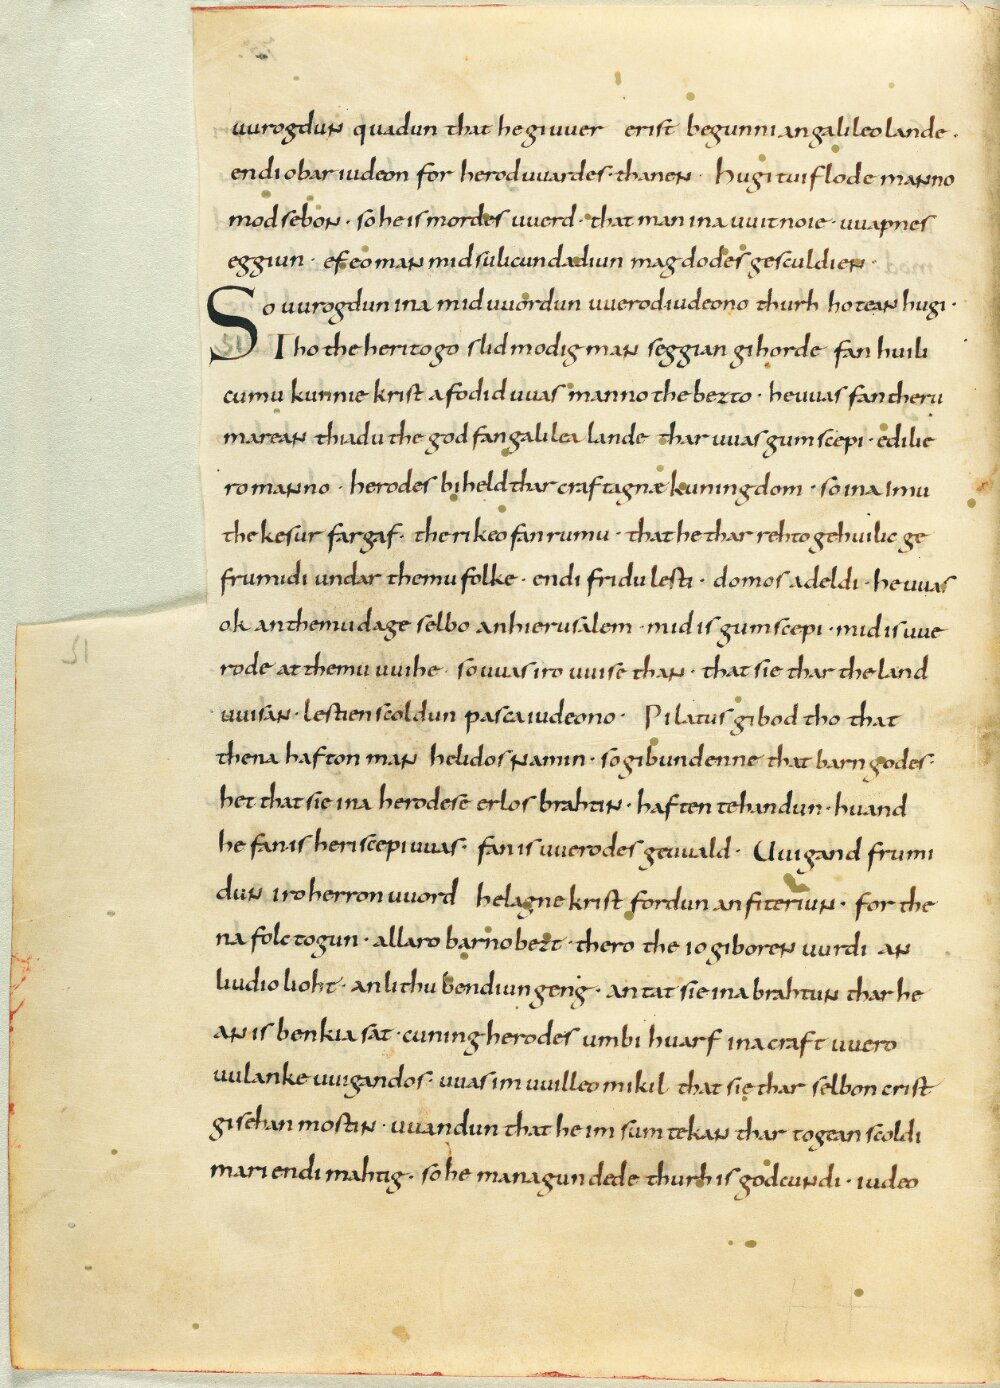 uurogdun quadun that he giuuer erist begunni an galileo lande ·
endi obar iudeon for herod uuardes · thanen · hugi tuiflode manno
modsebon · so he is mordes uuerd · that man ina uuitnoie · uuapnes
eggiun · ef eo man mid sulicun dadiun mag dodes gesculdien ·
So uurogdun ina mid uuordun uuerod iudeono thurh hotean hugi ·
Tho the heritogo slidmodig man seggian gihorde fan huili
cumu kunnie krist afodid uuas manno the bezto · he uuas fan theru
marean thiadu the god fan galilea lande thar uuas gumscepi · edilie
ro manno · herodes biheld thar craftagnæ kuningdom · so ina imu
the kesur fargaf · the rikeo fan rumu · that he thar rehto gehuilic ge
frumidi undar themu folke · endi fridu lesti · domos adeldi · he uuas
ok an themu dage selbo an hierusalem · mid is gumscepi · mid is uue
rode at themu uuihe · so uuas iro uuise than · that sie thar the land
uuisan · lestien scoldun pasca iudeono · Pilatus gibod tho that
thena hafton man helidos namin · so gibundenne that barn godes ·
het that sie ina herodese erlos brahtin · haften te handun · huand
he fan is heriscepi uuas · fan is uuerodes geuuald · Uuigand frumi
dun iro herron uuord helagne krist fordun an fiteriun · for the
na folctogun · allaro barno bezt · thero the io giboren uurdi an
liudio lioht · an lithubendiun geng · antat sie ina brahtun thar he
an is benkia sat · cuning herodes umbihuarf ina craft uuero
uulanke uuigandos · uuas im uuilleo mikil that sie thar selbon crist
gisehan mostin · uuandun that he im sum tekan thar togean scoldi
mari endi mahtig · so he managun dede thurh is godcundi · iudeo